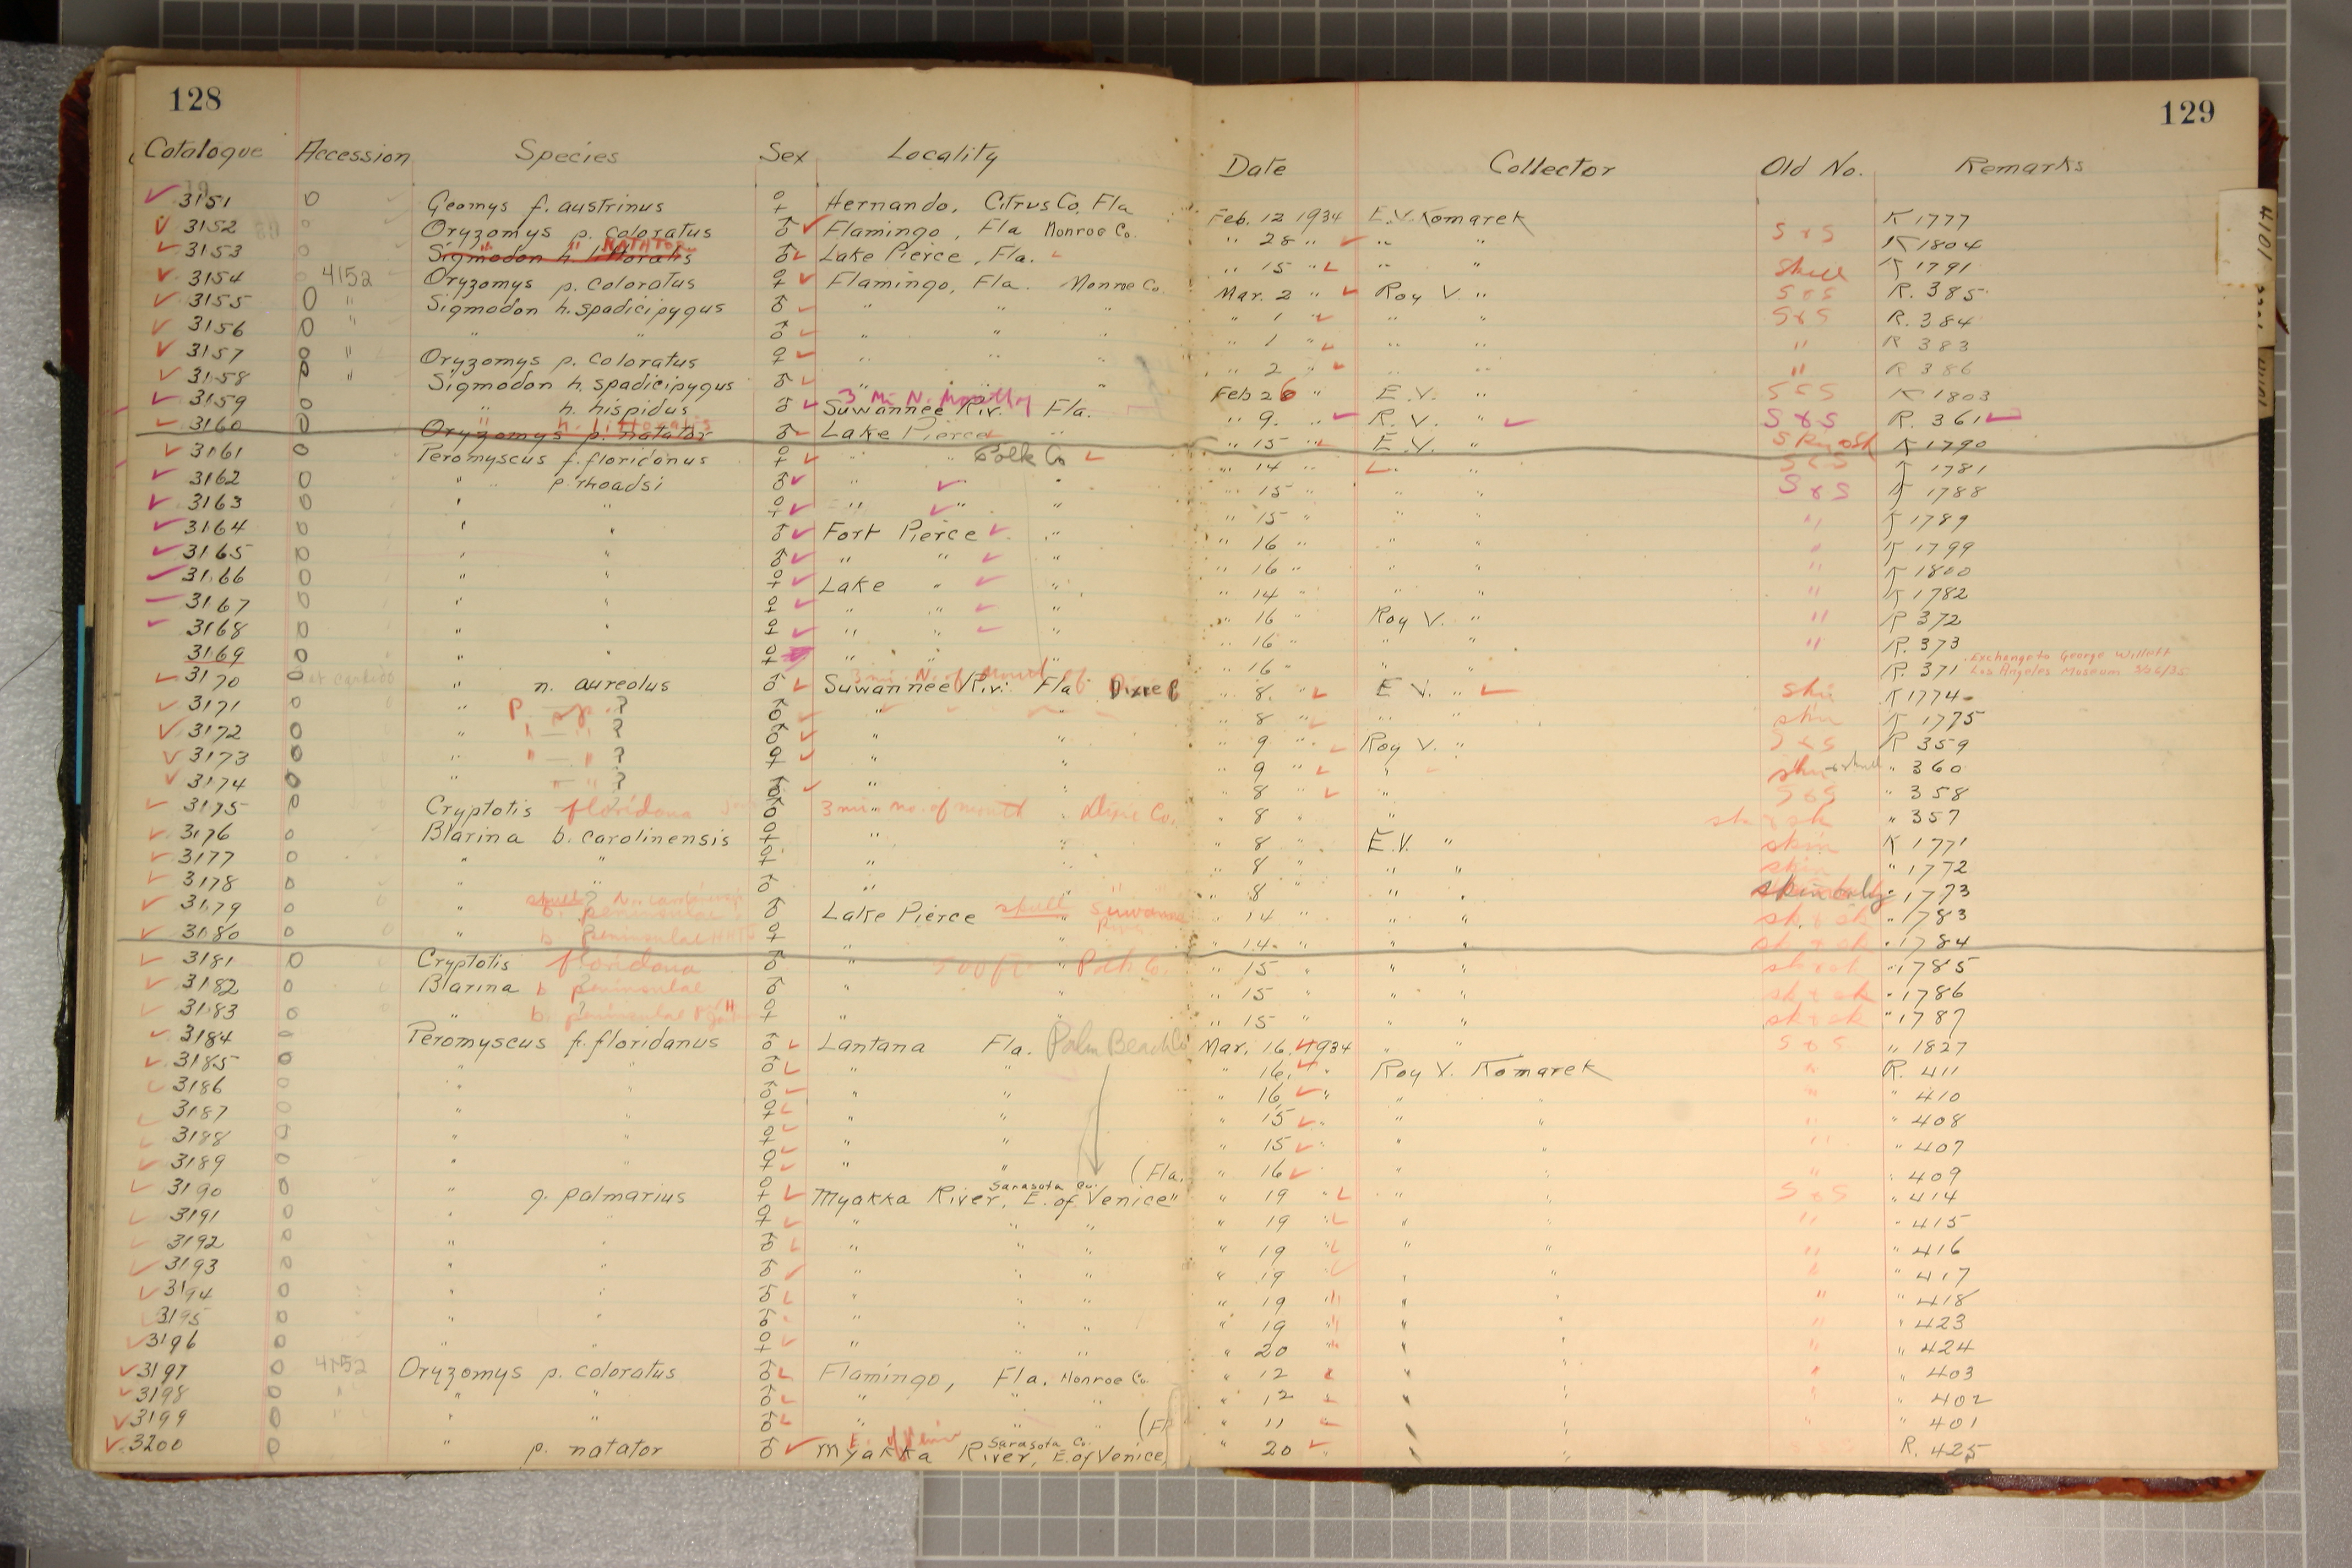 128
129
Catalogue Accession Species Sex Locality Date Collector Old No. Remarks
✓ 3151 0 Geomys f. austrinus ♀ Hernando, Citrus Co. Fla Feb. 12 1934 E.V. Komarek K 1777
✓ 3152 0 Oryzomys p. coloratus ♂ ✓ Flamingo, Fla Monroe Co. " 28 " ✓ " " S & S K 1804
✓ 3153 0 Sigmodon h. littoralis " " NATATOR ♂ ✓ Lake Pierce, Fla. " 15 " ✓ " " Skull K 1791
✓ 3154 0 4152 Oryzomys p. coloratus ♀ ✓ Flamingo, Fla. Monroe Co. Mar. 2 " ✓ Roy V. " S & S R. 385
✓ 3155 0 " Sigmodon h. spadicipygus ♂ ✓ " " " " 1 " ✓ " " S & S R. 384
✓ 3156 0 " " " ♂ ✓ " " " " 1 " ✓ " " " R 383
✓ 3157 0 " Oryzomys p. coloratus ♀ ✓ " " " " 2 " ✓ " " " R 386
✓ 3158 0 " Sigmodon h. spadicipygus ♂ ✓ " " " Feb 26 " E.V. " S & S K 1803
3 Mi N. Mouth of
✓ 3159 0 " h. hispidus ♂ ✓ Suwannee Riv. Fla. " 9. " ✓ R.V. " ✓ S & S R. 361 ✓
✓ 3160 0 Oryzomys p. natator " h. littoralis ♂ ✓ Lake Pierce " " 15 " ✓ E.V. " K 1790
✓ 3161 0 Peromyscus f. floridanus ♀ ✓ " " Polk Co ✓ " 14 " ✓ " S & S K 1781
✓ 3162 0 " " p. rhoadsi ♂ ✓ " ✓ " " 15 " " " S & S K 1788
✓ 3163 0 " " ♀ ✓ " ✓ " " " 15 " " " K 1789
✓ 3164 0 " " ♂ ✓ Fort Pierce ✓ " " 16 " " " " K 1799
✓ 3165 0 " " ♂ ✓ " " ✓ " " 16 " " " " K 1800
✓ 3166 0 " " ♀ ✓ Lake " ✓ " " 14 " " " " K 1782
3167 0 " " ♀ ✓ " " ✓ " " 16 " Roy V. " " R 372
✓ 3168 0 " " ♀ ✓ " " ✓ " " 16 " " " " R. 373
3169 0 " " ♀ " " " " 16 " " " R. 371 Exchange to George Willett
Los Angeles Museum 3/26/35
3 mi. N. of Mouth of
✓ 3170 0 " n. aureolus ♂ ✓ Suwannee Riv. Fla Dixie C " 8. " ✓ E V. " ✓ skin K 1774
✓ 3171 0 " P. sp. ? ♂ ✓ " " " 8 " ✓ " " skin K 1775
✓ 3172 0 " " — " ? ♂ ✓ " " " 9 " ✓ Roy V. " S & S R 359
✓ 3173 0 " " — " ? ♀ ✓ " " " 9 " ✓ " skin + skull " 360
✓ 3174 0 " — " ? ♂ ✓ " " " 8 " ✓ " S & S " 358
✓ 3175 0 Cryptotis floridana ♂ 3 mi. no. of mouth " Dixie Co. " 8 " " sk & sk " 357
✓ 3176 0 Blarina b. carolinensis ♀ " " " 8 " E.V. " skin K 1771
✓ 3177 0 " " ♀ " " " 8 " " " skin " 1772
✓ 3178 0 " " ♂ " " " 8 " " " skin only " 1773
✓ 3179 0 " b. peninsulae ♂ Lake Pierce skull " Suwannee River " 14 " " " sk. & sk " 1783
✓ 3180 0 " b. peninsulae ♀ " " " 14. " " " sk & sk " 1784
✓ 3181 0 Cryptotis floridana ♂ " " Polk Co. " 15 " " " sk & sk " 1785
✓ 3182 0 Blarina b. peninsulae ♂ " " " 15 " " " sk & sk " 1786
✓ 3183 0 " b. peninsulae ♀ " " " 15 " " " sk & sk " 1787
✓ 3184 0 Peromyscus f. floridanus ♂ ✓ Lantana Fla. Palm Beach Co Mar. 16, 1934 " " S & S " 1827
✓ 3185 0 " " ♂ ✓ " " " 16. ✓ " Roy V. Komarek " R. 411
✓ 3186 0 " " ♂ ✓ " " " 16 ✓ " " " " " 410
✓ 3187 0 " " ♀ ✓ " " " 15 ✓ " " " " " 408
✓ 3188 0 " " ♀ ✓ " " " 15 ✓ " " " " " 407
✓ 3189 0 " " ♀ ✓ " " (Fla. " 16 ✓ " " " " 409
✓ 3190 0 " g. palmarius ♀ ✓ Myakka River, Sarasota Co. E. of Venice " 19 " ✓ " " S & S " 414
✓ 3191 0 " " ♀ ✓ " " " " 19 " ✓ " " " " 415
✓ 3192 0 " " ♂ ✓ " " " " 19 " ✓ " " " " 416
✓ 3193 0 " " ♂ ✓ " " " " 19 ✓ " " " " 417
✓ 3194 0 " " ♂ ✓ " " " " 19 " " " " " 418
3195 0 " " ♂ " " " " 19 " " " " " 423
✓ 3196 0 " " ♀ ✓ " " " " 20 " " " " " 424
✓ 3197 0 4152 Oryzomys p. coloratus ♂ ✓ Flamingo, Fla. Monroe Co. " 12 " " " " " 403
✓ 3198 0 " " " ♂ ✓ " " " " 12 " " " " " 402
✓ 3199 0 " " " ♂ ✓ " " " (Fl " 11 " " " " " 401
✓ 3200 0 " p. natator ♂ ✓ Myakka River, Sarasota Co. E. of Venice, " 20 ✓ " " " R. 425
4101